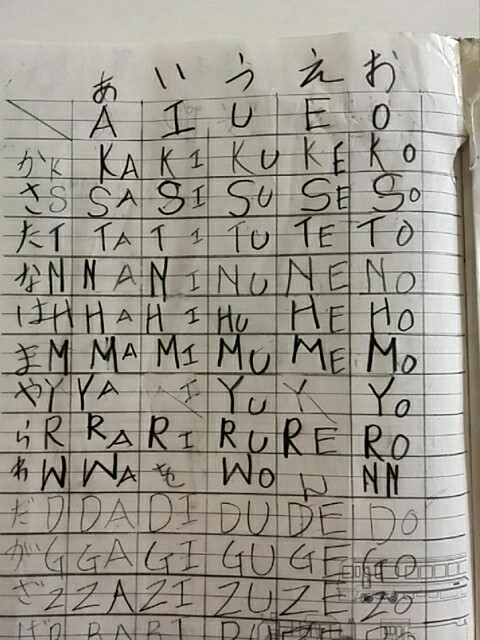 あ い う え お
A I U E O
か K KA KI KU KE KO
さ S SA SI SU SE SO
た T TA TI TU TE TO
な N NA NI NU NE NO
は H HA HI HU HE HO
ま M MA MI MU ME MO
や Y YA I YU Y YO
ら R RA RI RU RE RO
わ W WA を WO ん NN
だ D DA DI DU DE DO
が G GA GI GU GE GO
ざ Z ZA ZI ZU ZE ZO
ば B BA BI